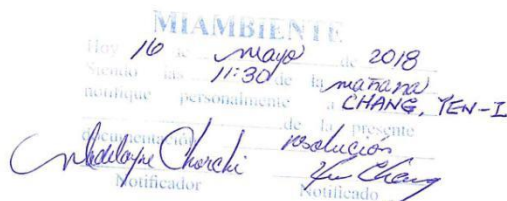 MIAMBIENTE
Hoy 16 de mayo de 2018
Siendo las 11:30 de la mañana
notifique personalmente a CHANG, YEN-I
de la presente
documentación resolucion
Notificador Notificado